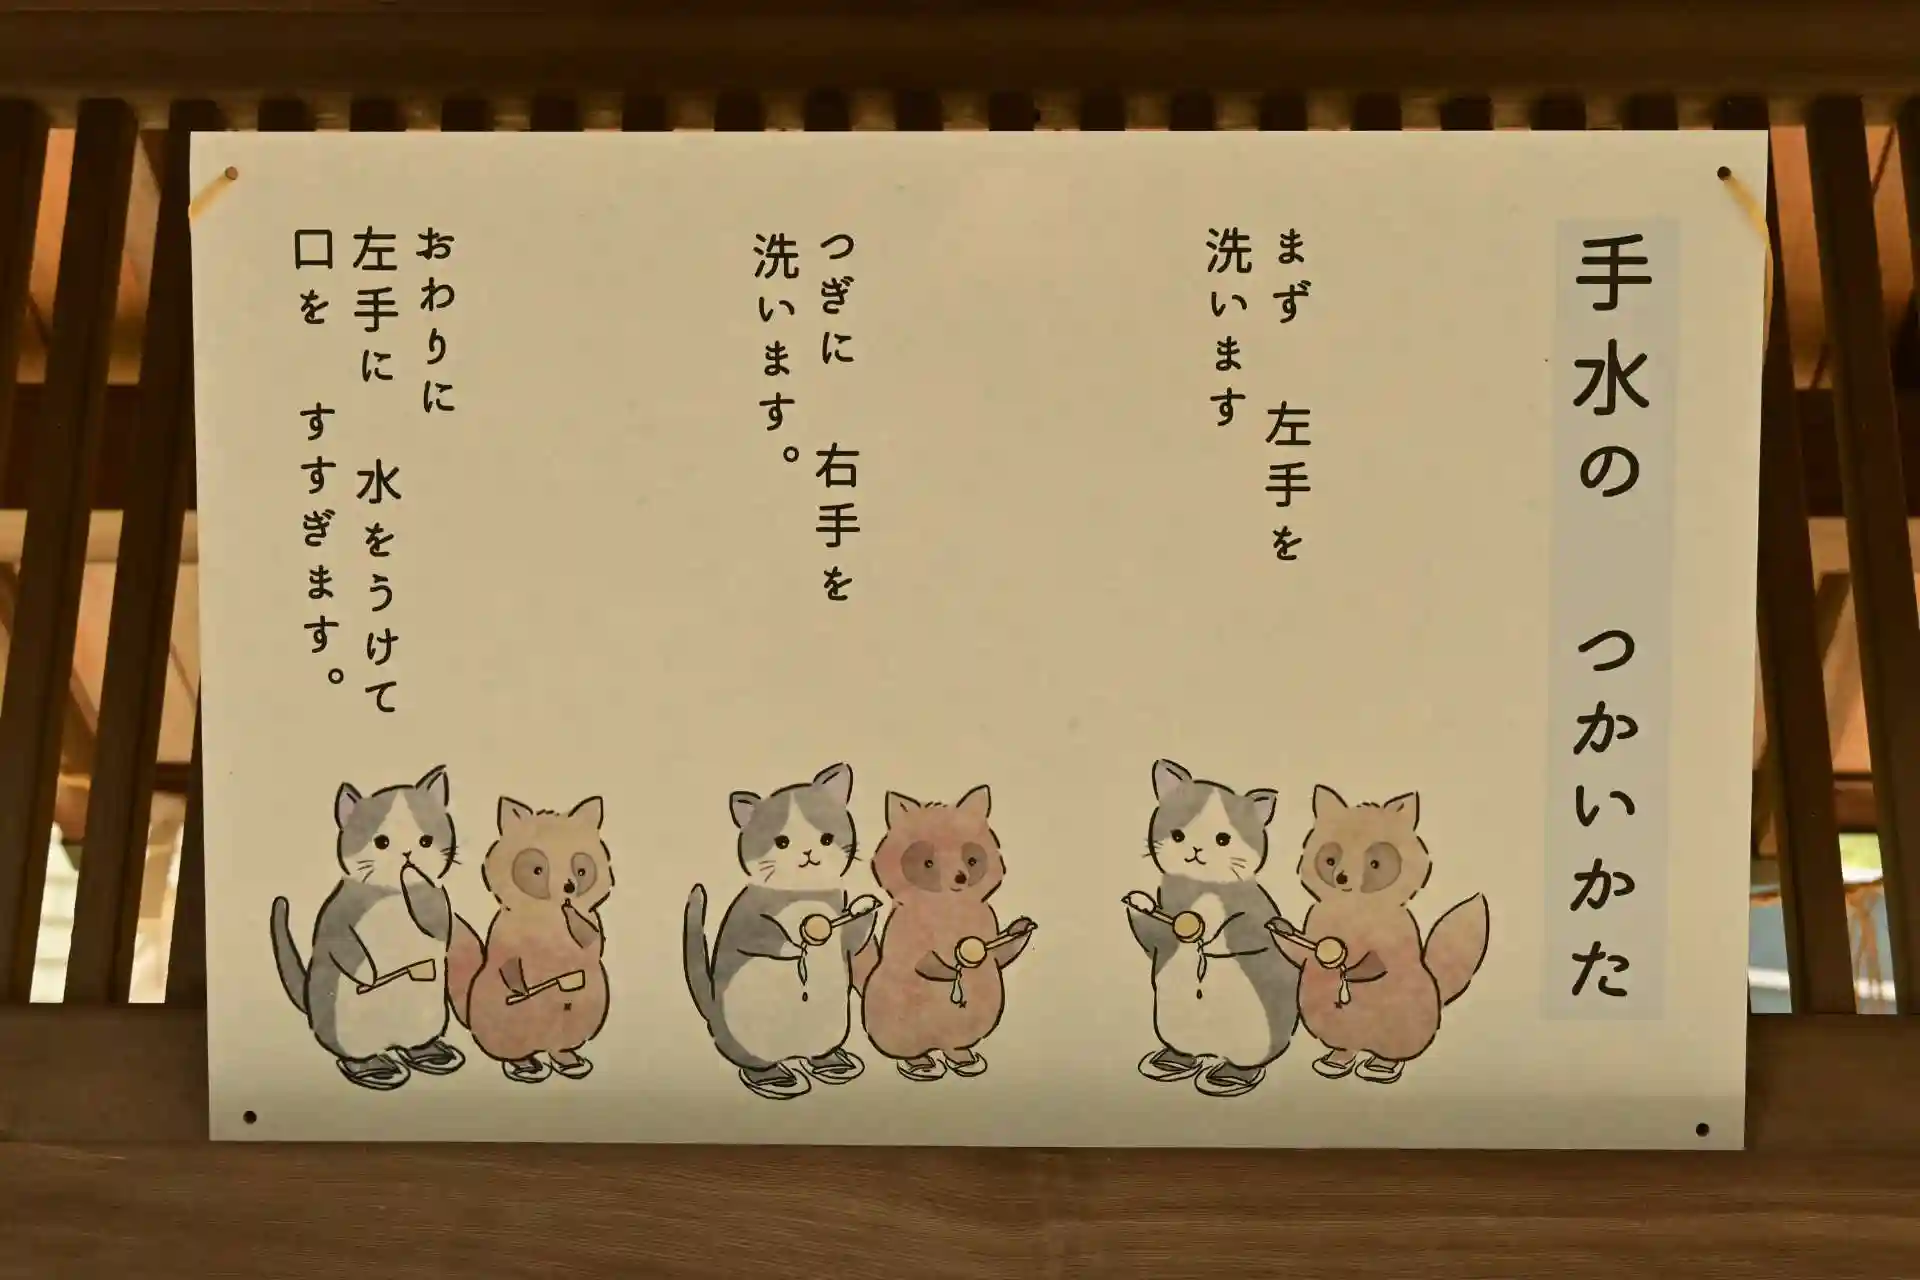 手水の つかいかた
まず 左手を
洗います
つぎに 右手を
洗います。
おわりに
左手に 水をうけて
口を すすぎます。